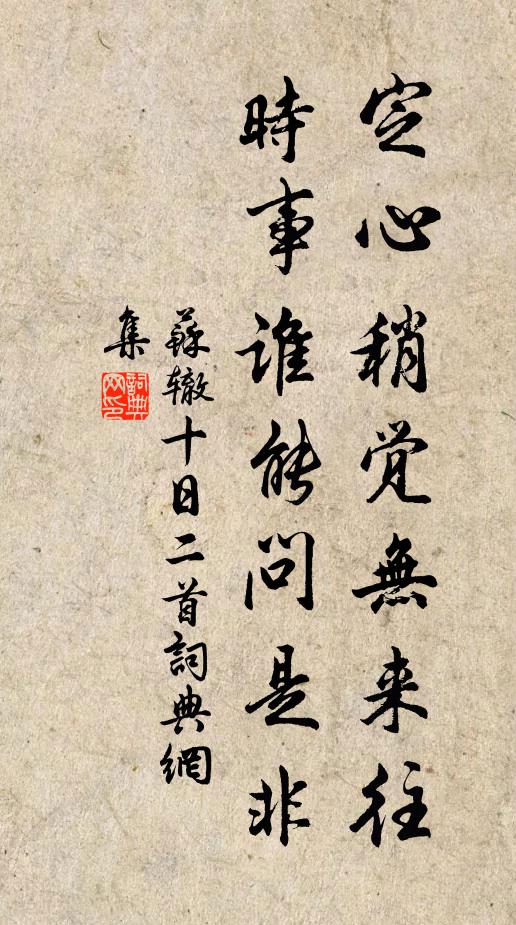 定心稍覺無来往
時事誰能問是非
蘇辙十日二首詞典網
集
詞典
网印